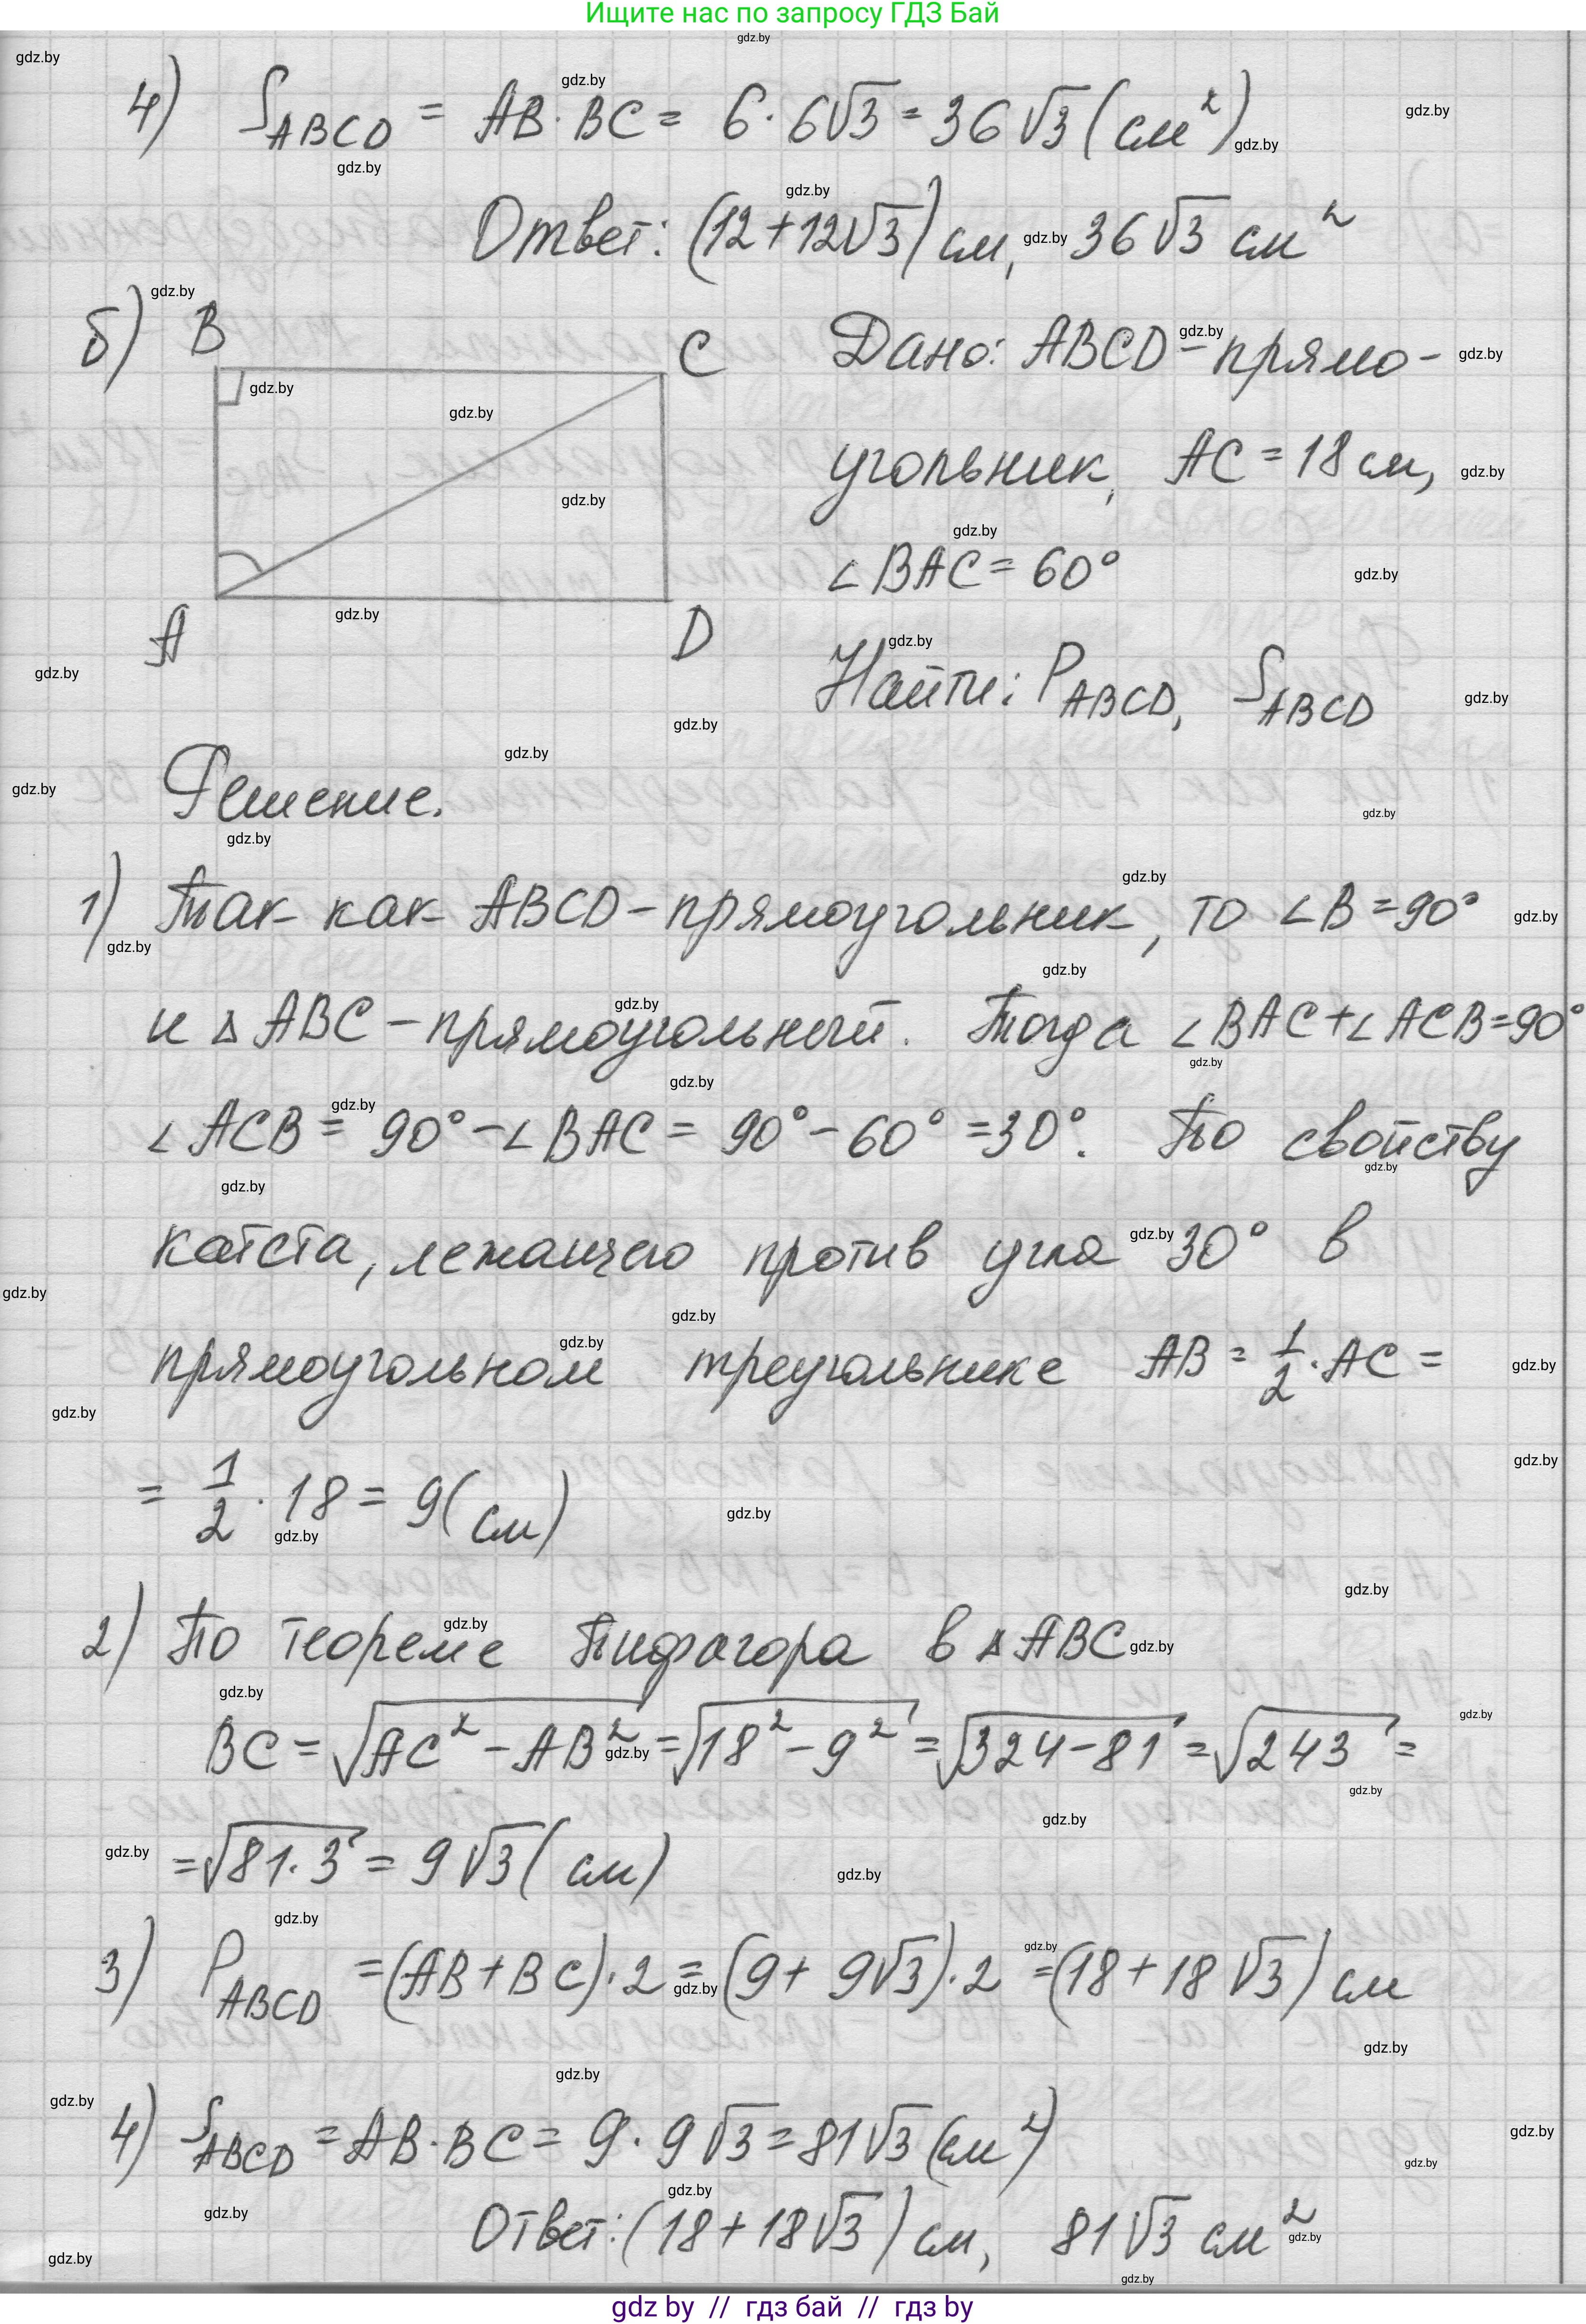 Ищите нас по запросу ГДЗ Бай
4) S_ABCD = AB · BC = 6 · 6√3 = 36√3 (см²)
Ответ: (12+12√3) см, 36√3 см²
б) B
C
A
D
Дано: ABCD – прямо-
угольник, AC = 18 см,
∠BAC = 60°
Найти: P_ABCD, S_ABCD
Решение.
1) Так как ABCD – прямоугольник, то ∠B = 90°
и △ABC – прямоугольный. Тогда ∠BAC+∠ACB=90°
∠ACB = 90° – ∠BAC = 90° – 60° = 30°. По свойству
катета, лежащего против угла 30° в
прямоугольном треугольнике AB = 1/2 · AC =
= 1/2 · 18 = 9 (см)
2) По теореме Пифагора в △ABC
BC = √(AC² – AB²) = √(18² – 9²) = √(324–81) = √243 =
= √(81·3) = 9√3 (см)
3) P_ABCD = (AB+BC)·2 = (9+9√3)·2 = (18+18√3) см
4) S_ABCD = AB · BC = 9 · 9√3 = 81√3 (см²)
Ответ: (18+18√3) см, 81√3 см²
gdz by // гдз бай // гдз by